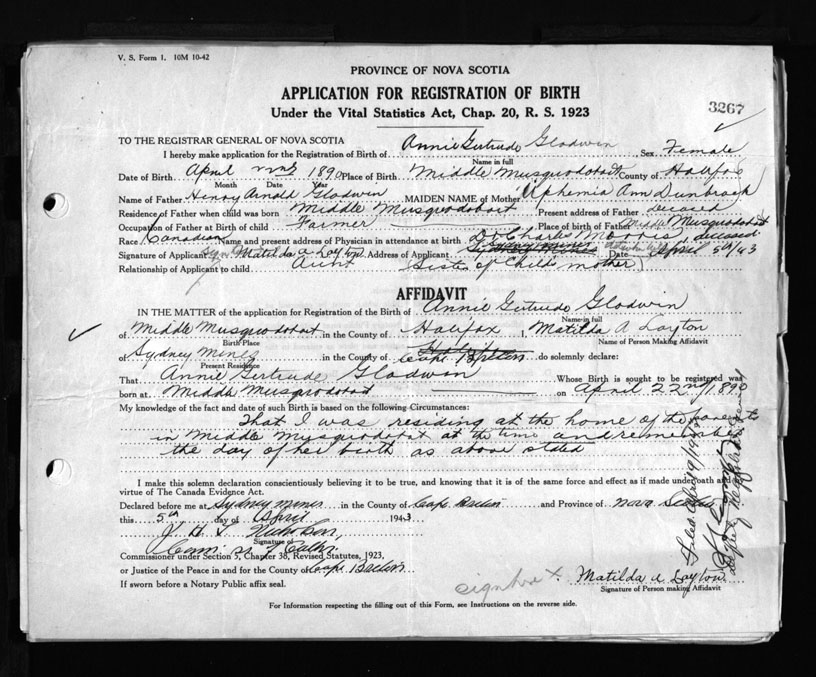 V. S. Form 1. 10M 10-42
PROVINCE OF NOVA SCOTIA
APPLICATION FOR REGISTRATION OF BIRTH
Under the Vital Statistics Act, Chap. 20, R. S. 1923
3267
TO THE REGISTRAR GENERAL OF NOVA SCOTIA
I hereby make application for the Registration of Birth of Annie Gertrude Gladwin Sex Female
Name in full
Date of Birth April 22nd 1890 Place of Birth Middle Musquodoboit County of Halifax
Month Date Year
Name of Father Henry Arnold Gladwin MAIDEN NAME of Mother Uphemia Ann Dunbrack
Residence of Father when child was born Middle Musquodoboit Present address of Father deceased
Occupation of Father at Birth of child Farmer Place of Birth of Father Middle Musquodoboit
Race Canadian Name and present address of Physician in attendance at birth Dr Charles Morris deceased
Signature of Applicant Matilda A Layton Address of Applicant Sydney Mines Date April 5th/43
Relationship of Applicant to child Aunt Sister of Child's mother
AFFIDAVIT
IN THE MATTER of the application for Registration of the Birth of Annie Gertrude Gladwin
Name in full
of Middle Musquodoboit in the County of Halifax I, Matilda A Layton
Birth Place Name of Person Making Affidavit
of Sydney Mines in the County of Cape Breton do solemnly declare:
Present Residence
That Annie Gertrude Gladwin Whose Birth is sought to be registered was
born at Middle Musquodoboit on April 22nd/1890
My knowledge of the fact and date of such Birth is based on the following Circumstances:
That I was residing at the home of the parents
in Middle Musquodoboit at the time and remember
the day of her birth as above stated
I make this solemn declaration conscientiously believing it to be true, and knowing that it is of the same force and effect as if made under oath and
virtue of The Canada Evidence Act.
Declared before me at Sydney Mines in the County of Cape Breton and Province of Nova Scotia
this 5th day of April 1943
Signature of
Commissioner under Section 5, Chapter 38, Revised Statutes, 1923,
or Justice of the Peace in and for the County of Cape Breton
If sworn before a Notary Public affix seal.
signature X. Matilda A Layton
Signature of Person making Affidavit
For Information respecting the filling out of this Form, see Instructions on the reverse side.